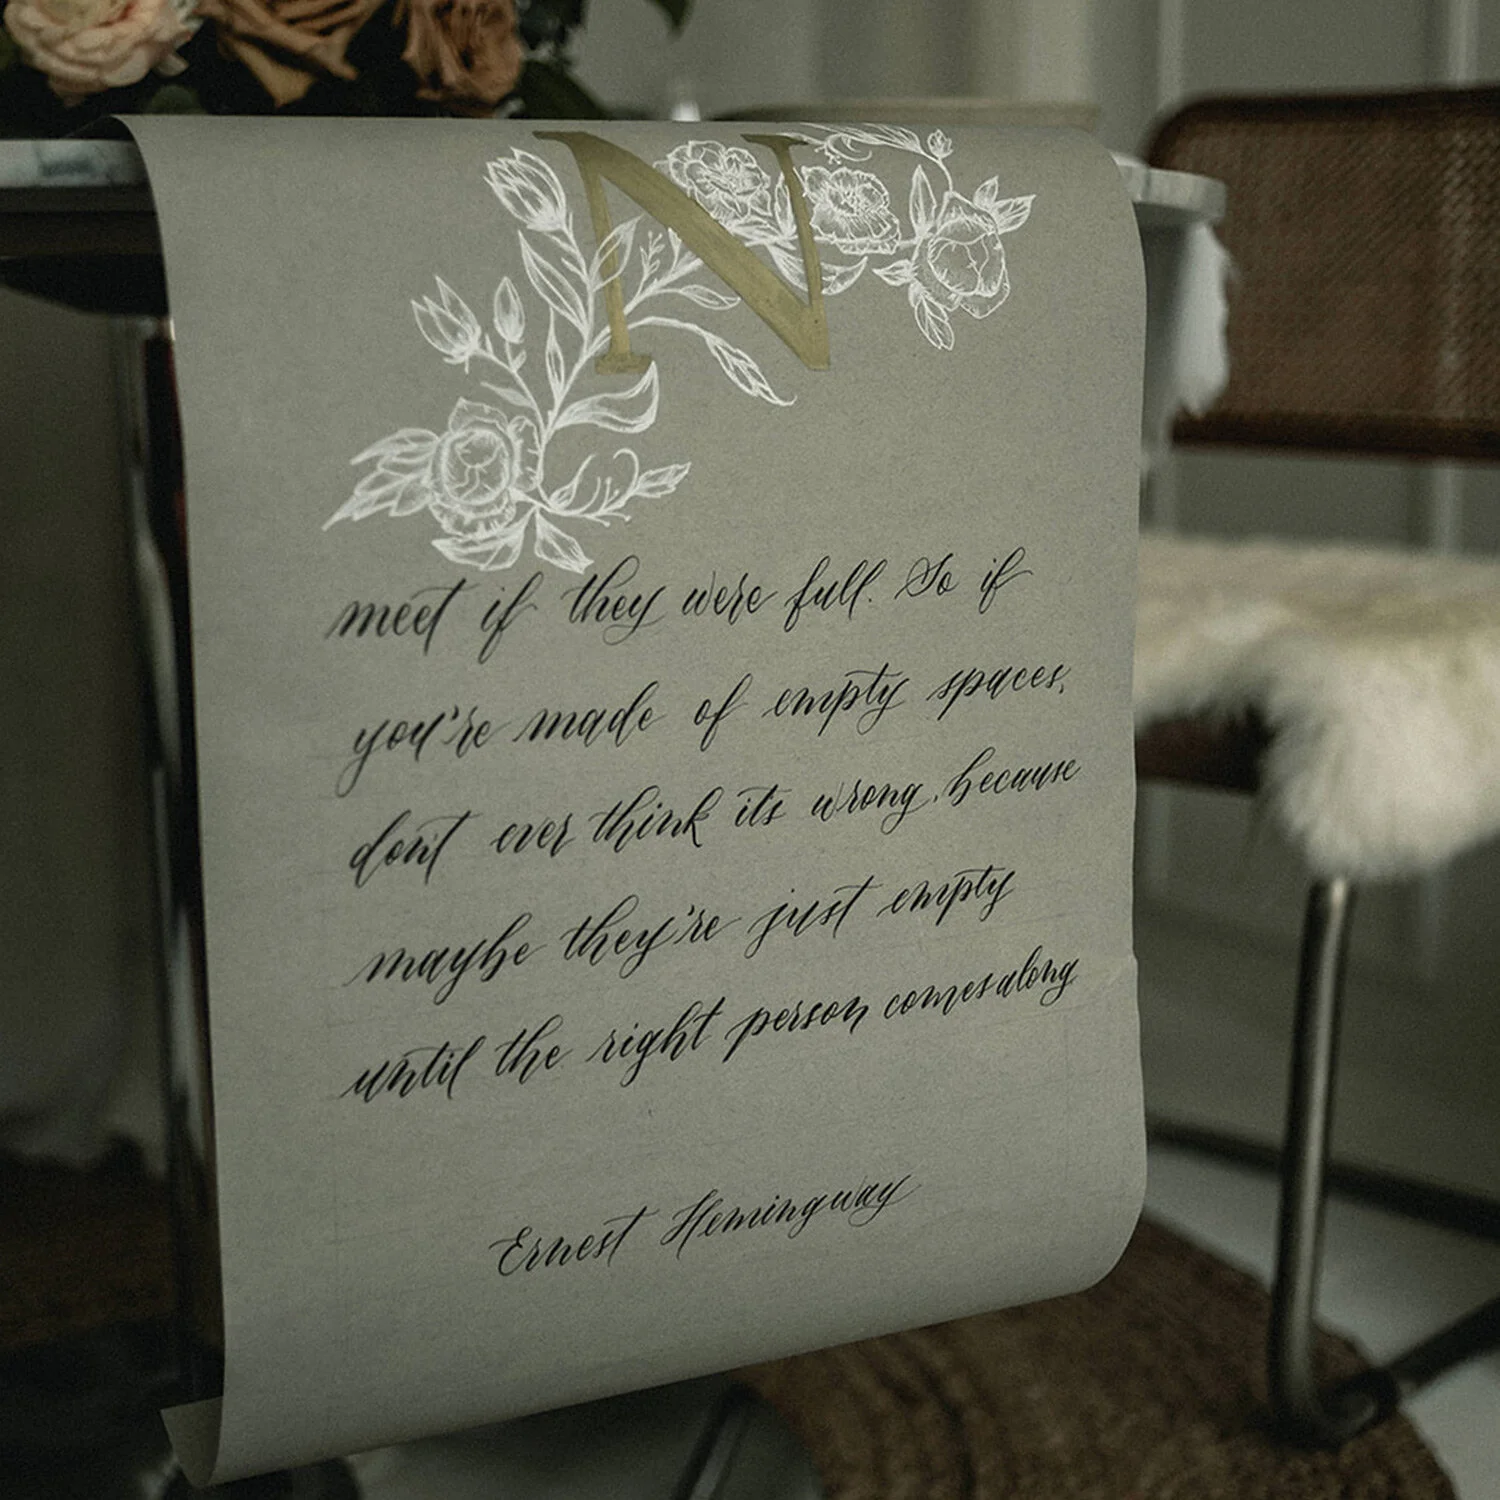 N
meet if they were full. So if
you're made of empty spaces,
don't ever think it's wrong, because
maybe they're just empty
until the right person comes along
Ernest Hemingway